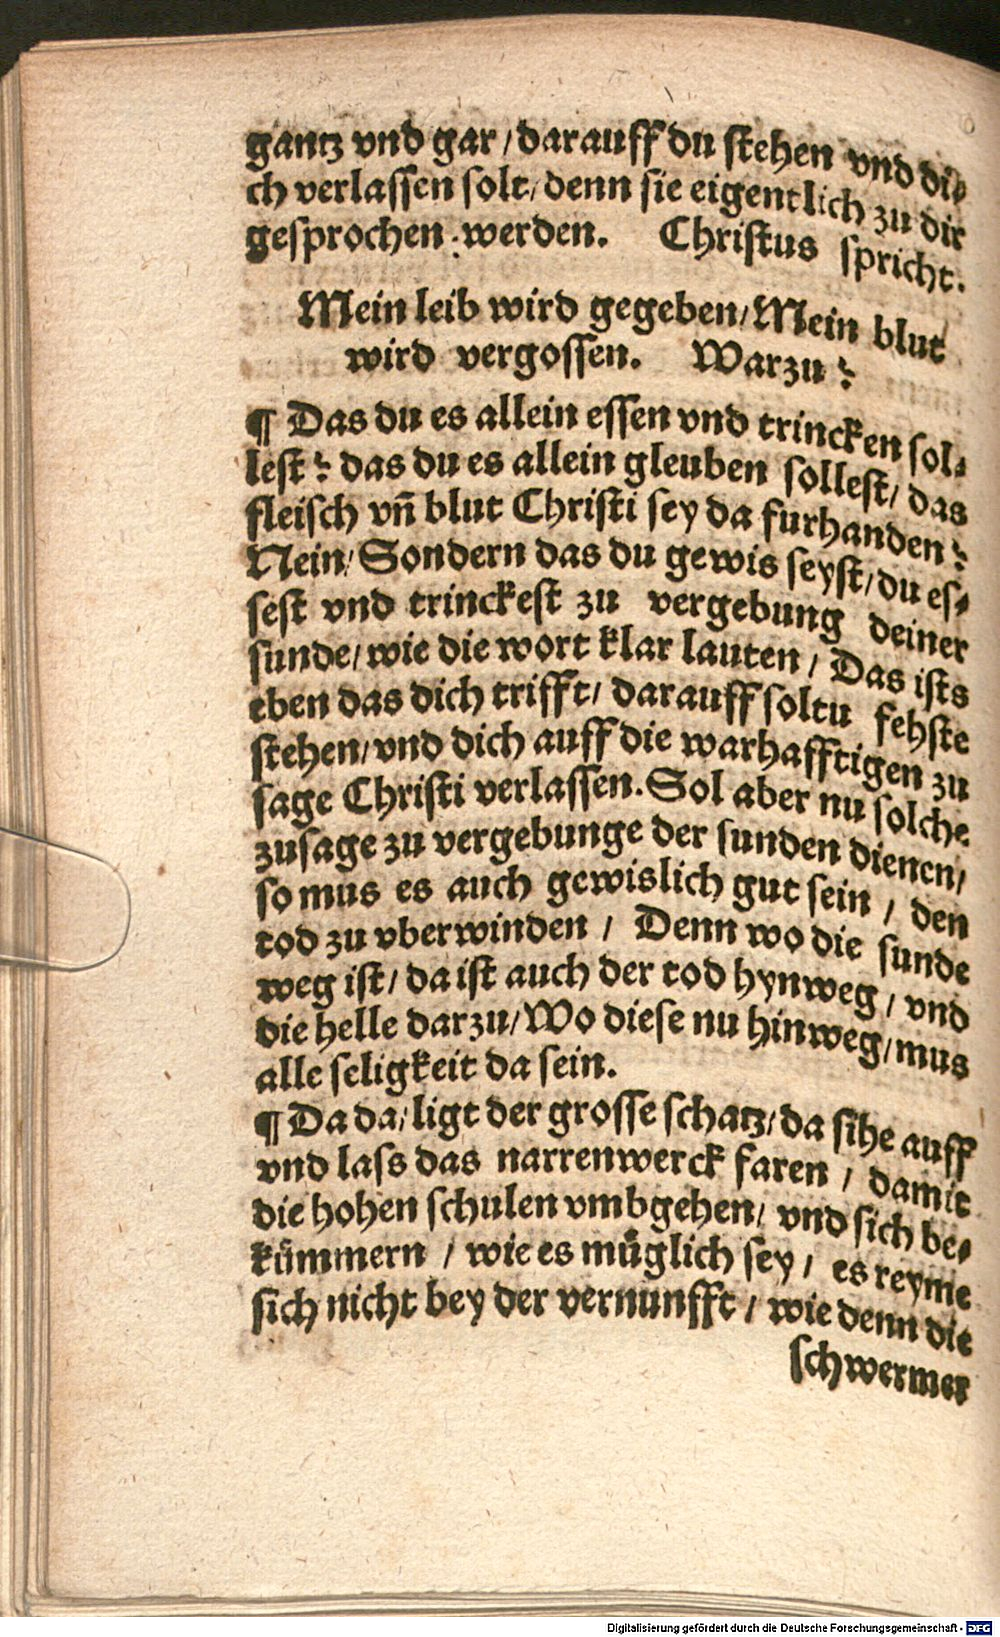 gantz vnd gar / darauff du stehen vnd di⸗
ch verlassen solt / denn sie eigentlich zu dir
gesprochen werden. Christus spricht.
Mein leib wird gegeben / Mein blut
wird vergossen. Warzu?
¶ Das du es allein essen vnd trincken sol⸗
lest? das du es allein gleuben sollest / das
fleisch vñ blut Christi sey da furhanden?
Nein / Sondern das du gewis seyst / du es⸗
sest vnd trinckest zu vergebung deiner
sunde / wie die wort klar lauten / Das ists
eben das dich trifft / darauff soltu fehste
stehen / vnd dich auff die warhafftigen zu
sage Christi verlassen. Sol aber nu solche
zusage zu vergebunge der sunden dienen /
so mus es auch gewislich gut sein / den
tod zu vberwinden / Denn wo die sunde
weg ist / da ist auch der tod hynweg / vnd
die helle darzu / Wo diese nu hinweg / mus
alle seligkeit da sein.
¶ Da da / ligt der grosse schatz / da sihe auff
vnd lass das narrenwerck faren / damit
die hohen schulen vmbgehen / vnd sich be⸗
kümmern / wie es müglich sey / es reyme
sich nicht bey der vernunfft / wie denn die
schwermer
Digitalisierung gefördert durch die Deutsche Forschungsgemeinschaft - DFG